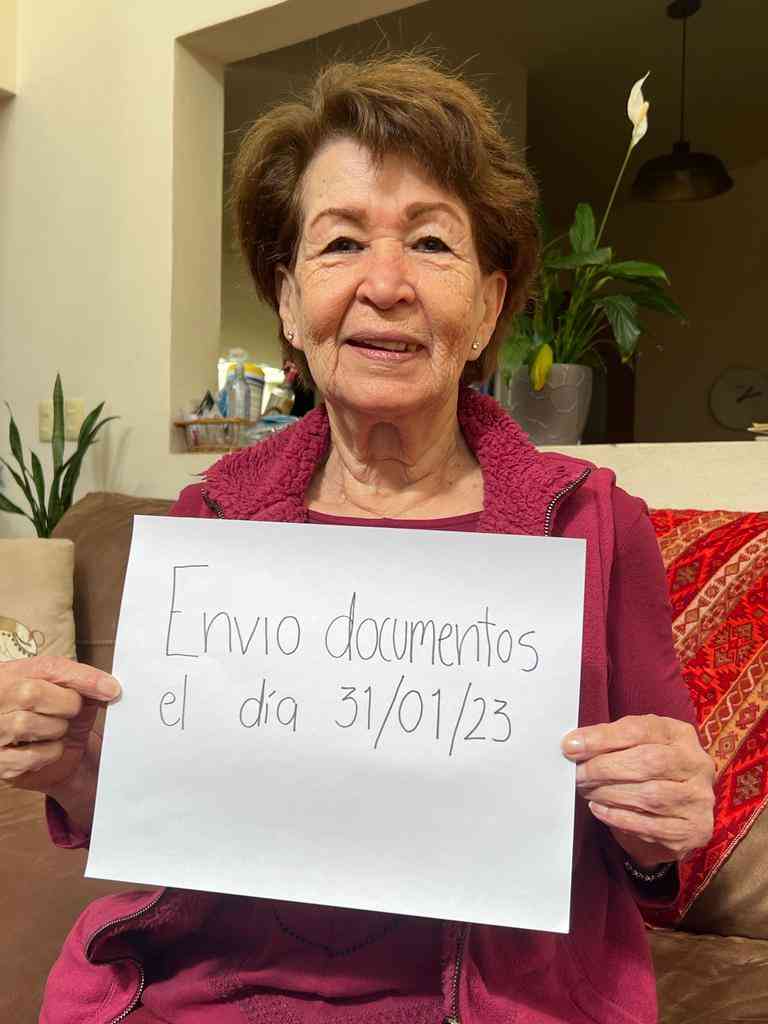 Envio documentos
el día 31/01/23